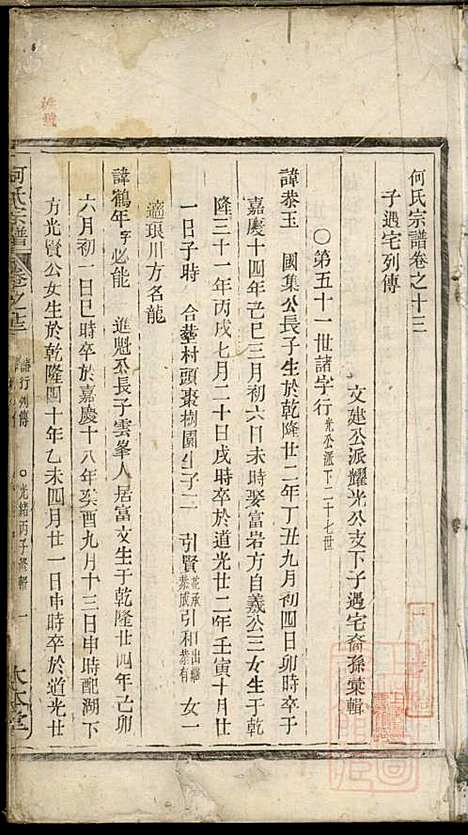 何氏宗譜卷之十三
子遇宅列傳
文建公派耀光公支下子遇宅裔孫棠輯
○第五十一世諸字行光公派下二十七世
諱恭玉 國集公長子生於乾隆廿二年丁丑九月初四日卯時卒于
嘉慶十四年己巳三月初六日未時娶富岩方自義公三女生于乾
隆三十一年丙戌七月二十日戌時卒於道光廿二年壬寅十月廿
一日子時 合塟村頭棗樹園生子二 引賢 引和出繼恭有 女一
適琅川方名龍
諱鶴年字必能 進魁公長子雲峯人居富文生于乾隆廿四年己卯
六月初一日巳時卒於嘉慶十八年癸酉九月十三日申時配湖下
方光賢公女生於乾隆四十年乙未四月廿一日申時卒於道光廿
何氏宗譜 卷之十三 諸行列傳 ○光緒丙子修輯 一 大本堂